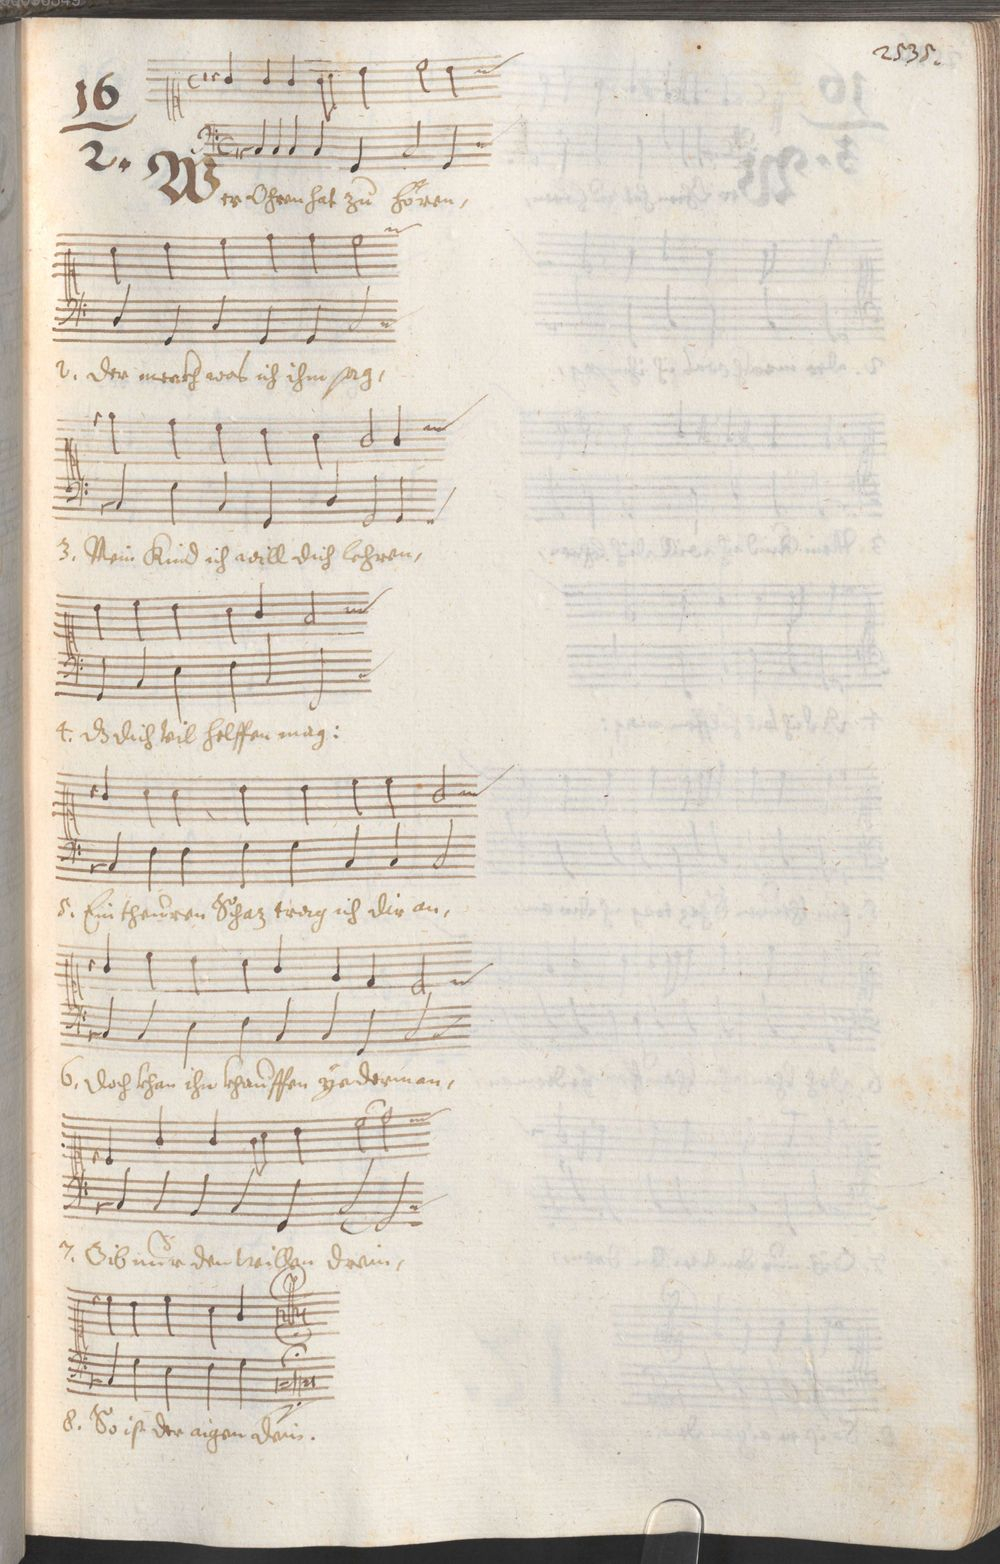 2535.
16
2.
Wer Ohren hat zu hören,
2. der merckh was ich ihm sag,
3. Mein Kind ich will dich lehren,
4. dz dich vil helffen mag:
5. Ein theuren Schaz trag ich dir an,
6. doch khan ihn khauffen yederman,
7. Gib nur den willen drein,
8. So ist der aigen dein.